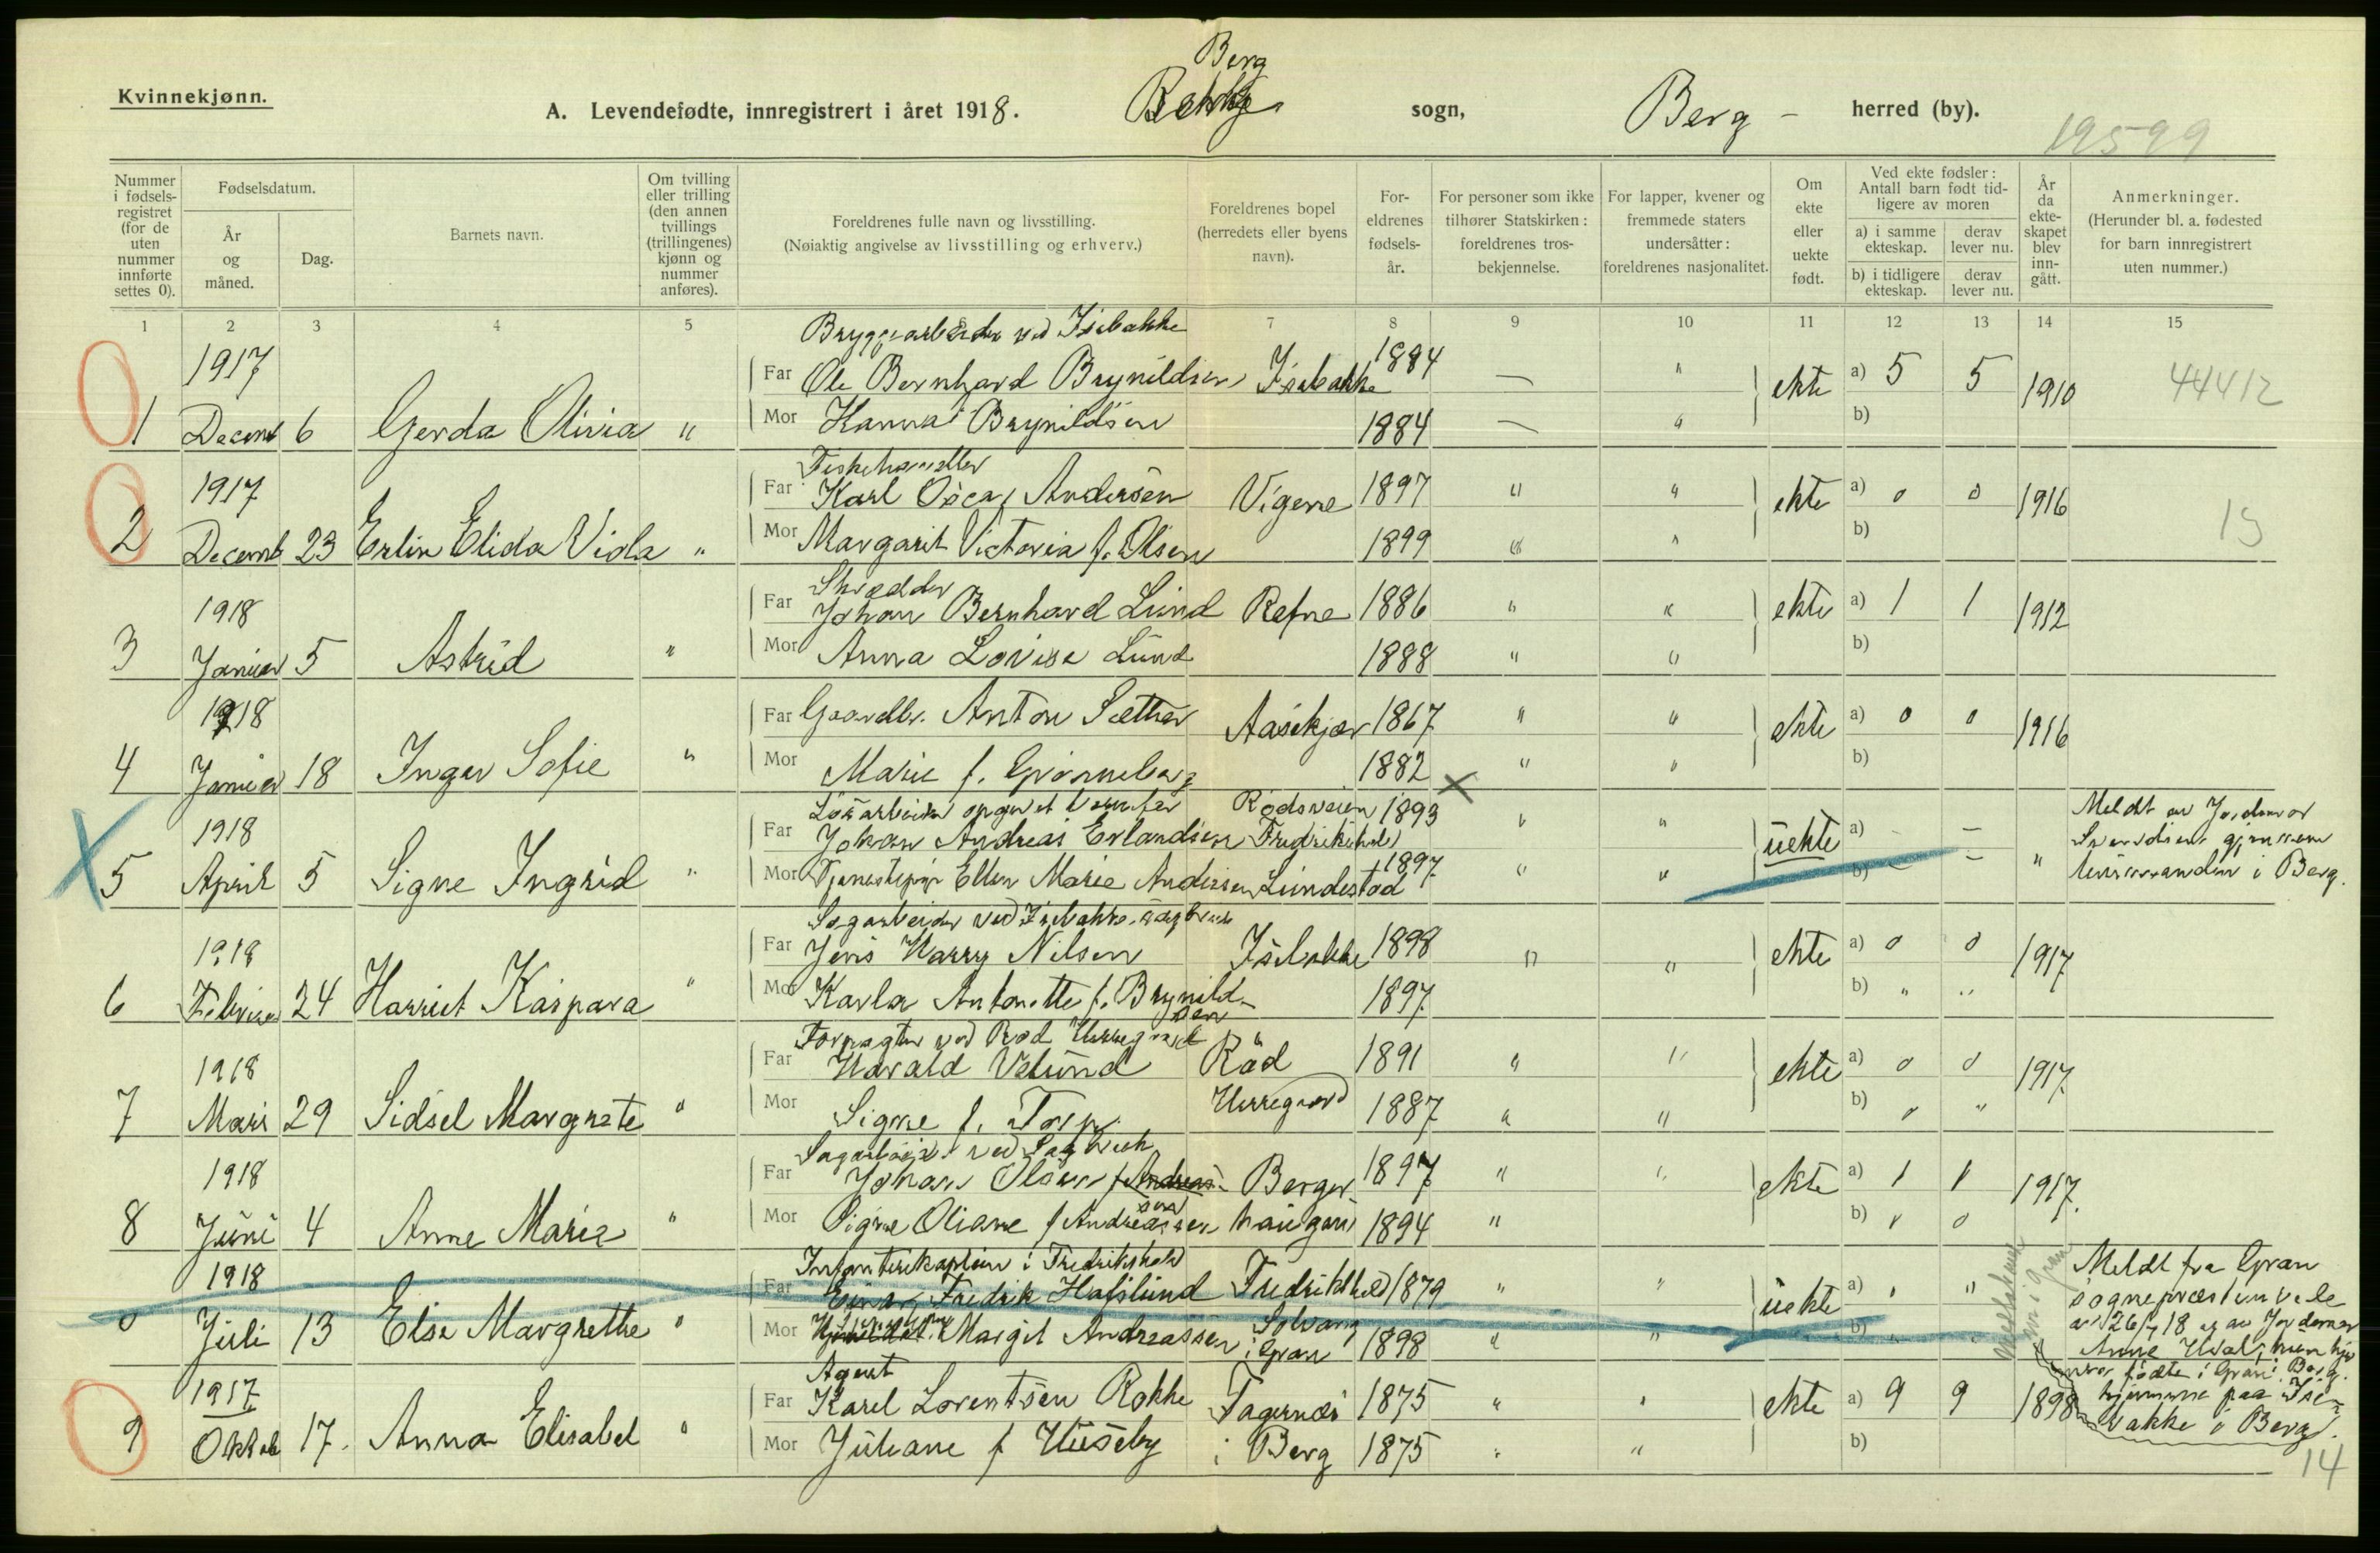 Berg
Kvinnekjønn.
A. Levendefødte, innregistrert i året 1918. sogn, Berg - herred (by).
19599
Nummer i fødselsregistret (for de uten nummer innførte settes 0).
Fødselsdatum.
År og måned.
Dag.
Barnets navn.
Om tvilling eller trilling (den annen tvillings (trillingenes) kjønn og nummer anføres).
Foreldrenes fulle navn og livsstilling.
(Nøiaktig angivelse av livsstilling og erhverv.)
Foreldrenes bopel (herredets eller byens navn).
Foreldrenes fødselsår.
For personer som ikke tilhører Statskirken: foreldrenes trosbekjennelse.
For lapper, kvener og fremmede staters undersåtter: foreldrenes nasjonalitet.
Om ekte eller uekte født.
Ved ekte fødsler: Antall barn født tidligere av moren
a) i samme ekteskap.
derav lever nu.
b) i tidligere ekteskap.
derav lever nu.
År da ekteskapet blev inngått.
Anmerkninger.
(Herunder bl. a. fødested for barn innregistrert uten nummer.)
1 2 3 4 5 6 7 8 9 10 11 12 13 14 15
Bryggearbeider ved Isebakke
1917 Far Ole Bernhard Brynildsen Isebakke 1884 — " ekte a) 5 5 1910 44412
1 Decemb 6 Gerda Olivia " Mor Hanna Brynildsen 1884 — " b)
Fiskehandler
1917 Far Karl Oscar Andersen Vigene 1897 " " ekte a) 0 0 1916 15
2 Decemb 23 Erlin Elida Viola " Mor Margarit Victoria f. Olsen 1899 " " b)
Skrædder
1918 Far Johan Bernhard Lund Refne 1886 " " ekte a) 1 1 1912
3 Januar 5 Astrid " Mor Anna Lovise Lund 1888 " " b)
1918 Far Gaardbr. Anton Sæther Aasekjær 1867 " " ekte a) 0 0 1916
4 Januar 18 Inger Sofie " Mor Marie f. 1882 " " b)
Rødsveien
1918 Far Johan Andreas Erlandsen Fredrikshald 1893 " " uekte a) - — Meldt av Jordmor
5 April 5 Signe Ingrid " Mor Tjenestepige Ellen Marie Andersen Lundestad 1897 " " b) - — " i Berg.
Sagarbeider ved Isebakke sagbruk
1918 Far Jens Harry Nilsen Isebakke 1898 " " ekte a) 0 0 1917
6 Februar 24 Harriet Kaspara " Mor Karla Antonette f. Brynildsen 1897 b) " "
Forpagter ved Rød Herregaard
1918 Far Harald Velund Rød 1891 " " ekte a) 0 0 1917
7 Mars 29 Sidsel Margrete " Mor Signe f. Torp Herregaard 1887 " " b) " "
Sagarbeider ved Sagbruk
1918 Far Johan Olsen Berger 1897 " " ekte a) 1 1 1917
8 Juni 4 Anne Marie " Mor Signe Oliane f Andreassen haugen 1894 " b) " 0
Infanterikaptein i Fredrikshald
1918 Far Einar Fredrik Hafslund Fredrikshald 1879 " " uekte a) " " Meldt fra Gran
0 Juli 13 Else Margrethe " Mor Margit Andreassen Solvang i Gran 1898 " " b) " " sogneprestembede
av 26/7 18 og av Jordmor
Anne
Agent
født i Gran i Berg.
1917 Far Karel Lorentsen Rokke Fagernæs 1875 " " ekte a) 9 9 1898 hjemme paa Ise-
9 Oktob 17. Anna Elisabet " Mor Juliane f Huseby i Berg 1875 " " b) bakke i Berg.
14